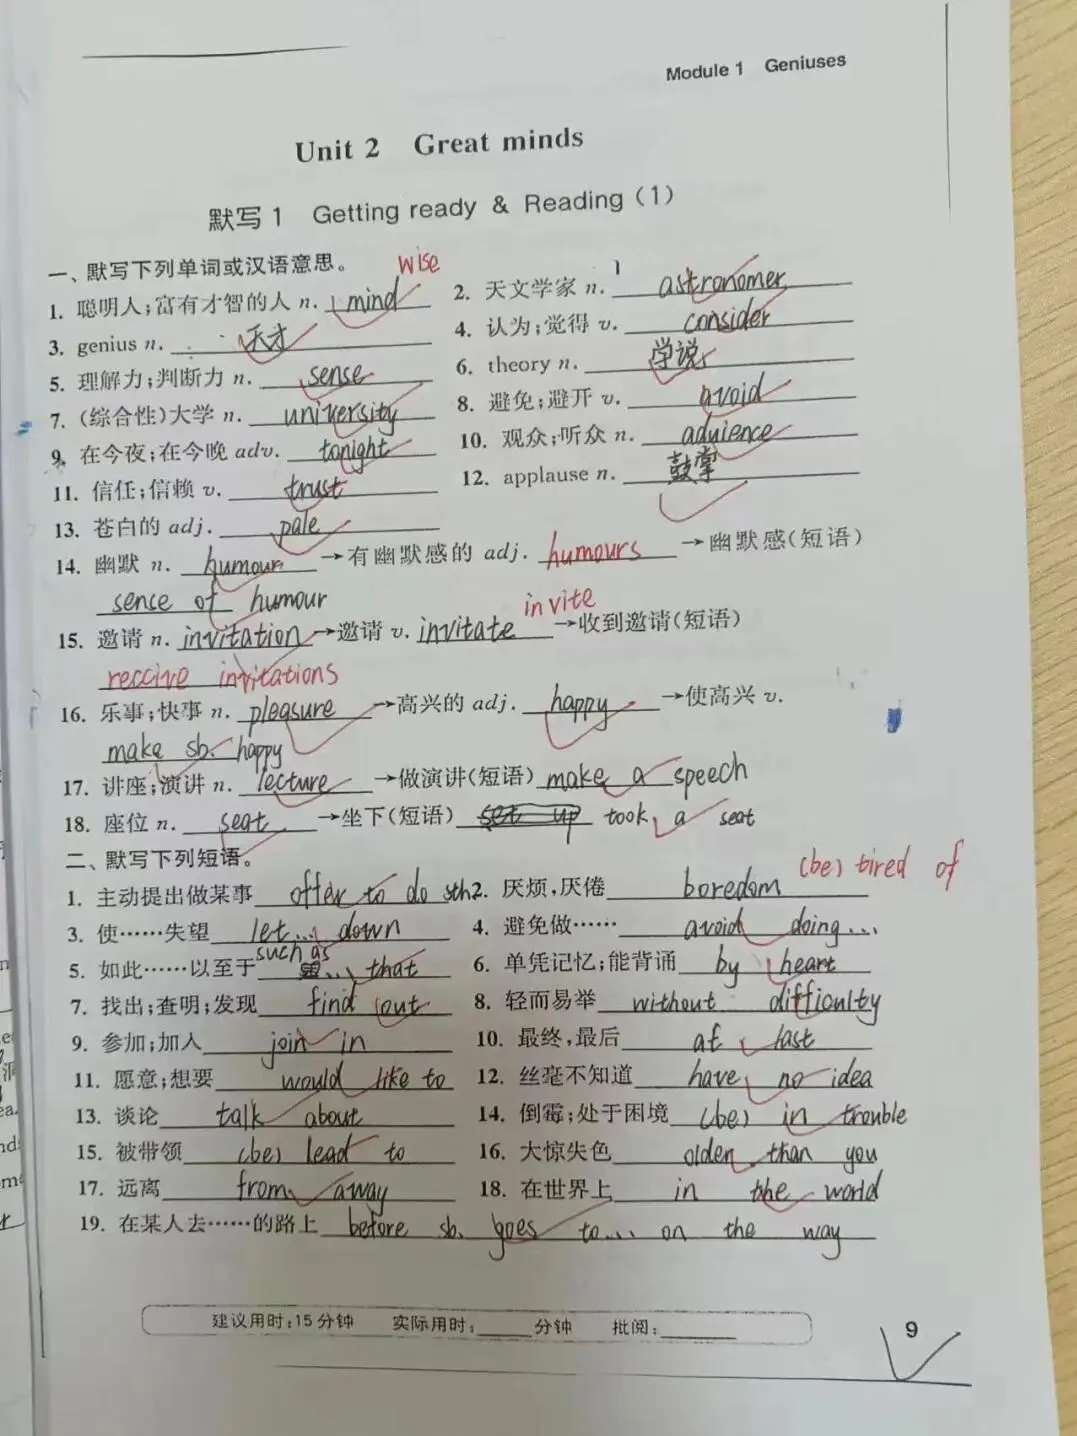 Module 1 Geniuses
Unit 2 Great minds
默写 1 Getting ready & Reading (1)
一、默写下列单词或汉语意思。
wise
1. 聪明人;富有才智的人 n. mind
2. 天文学家 n. astronomer
3. genius n. 天才
4. 认为;觉得 v. consider
5. 理解力;判断力 n. sense
6. theory n. 学说
7. (综合性)大学 n. university
8. 避免;避开 v. avoid
9. 在今夜;在今晚 adv. tonight
10. 观众;听众 n. aduience
11. 信任;信赖 v. trust
12. applause n. 鼓掌
13. 苍白的 adj. pale
14. 幽默 n. humour →有幽默感的 adj. humours →幽默感(短语)
sense of humour
invite
15. 邀请 n. invitation →邀请 v. invitate →收到邀请(短语)
reccive invitations
16. 乐事;快事 n. pleasure →高兴的 adj. happy →使高兴 v.
make sb. happy
17. 讲座;演讲 n. lecture →做演讲(短语) make a speech
18. 座位 n. seat →坐下(短语) set up took a seat
二、默写下列短语。
(be) tired of
1. 主动提出做某事 offer to do sth
2. 厌烦,厌倦 boredom
3. 使……失望 let... down
4. 避免做…… avoid doing...
such as
5. 如此……以至于 ... that
6. 单凭记忆;能背诵 by heart
7. 找出;查明;发现 find out
8. 轻而易举 without difficulty
9. 参加;加入 join in
10. 最终,最后 at last
11. 愿意;想要 would like to
12. 丝毫不知道 have no idea
13. 谈论 talk about
14. 倒霉;处于困境 (be) in trouble
15. 被带领 (be) lead to
16. 大惊失色 olden than you
17. 远离 from away
18. 在世界上 in the world
19. 在某人去……的路上 before sb. goes to... on the way
建议用时:15分钟 实际用时: 分钟 批阅:
9